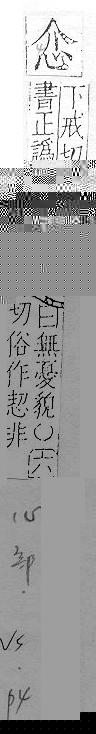 下戒切
曰無憂貌○六
書正譌
切俗作恝非
心部.
VS.
P4